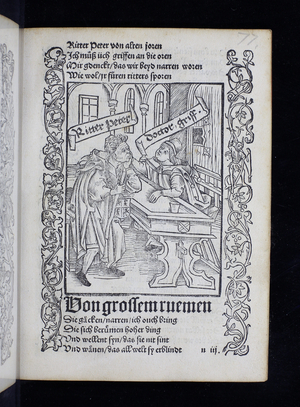 Ritter Peter von alten joren
Ich můß üch griffen an die oren
Mir gdenckt / das wir beyd narren woren
Wie wol / jr füren ritters sporen
Ritter Peter.
doctor griff.
Von grossem ruemen
Die gäcken / narren / ich ouch bring
Die sich berümen hoher ding
Vnd wellent syn / das sie nit sint
Vnd wänen / das all welt sy erblindt
u iij.